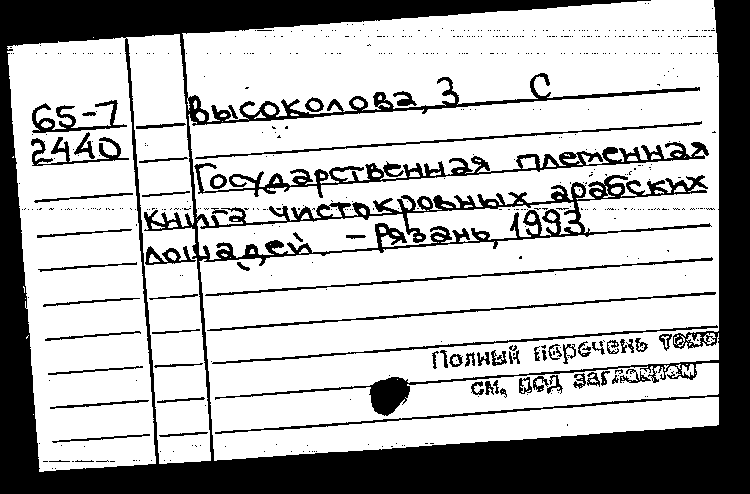 65-7
2440
Высоколова, З С
Государственная племенная
книга чистокровных арабских
лошадей. - Рязань, 1993.
Полный перечень томо
см. под заглавием